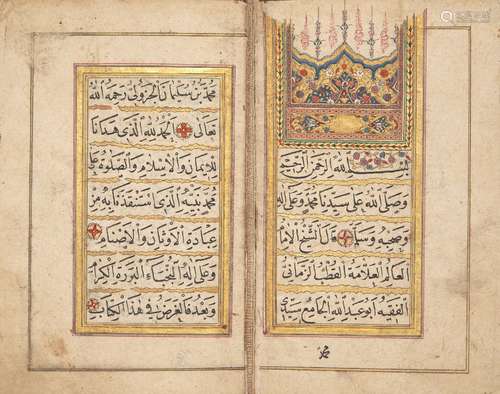 بسم الله الرحمن الرحيم
وصلى الله على سيدنا محمد وعلى اله
وصحبه وسلم قال الشيخ الاما
العالم العلامة القطب الزماني
الفقيه ابو عبد الله الجامع سيدي
محمد
محمد بن سليمان الجزولي رحمه الله
تعالى الحمد لله الذي هدانا
للايمان والاسلام والصلوة على
محمد نبيه الذي استنقذنا به من
عبادة الاوثان والاصنام
وعلى اله النجباء البررة الكرام
وبعد فالغرض في هذا الكتاب